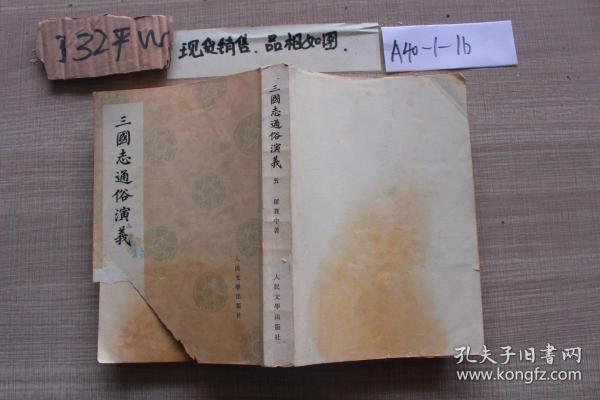 现货销售.品相如图.
A40-1-1b
三國志通俗演義
人民文學出版社
三國志通俗演義
五
羅貫中著
人民文學出版社
孔夫子旧书网
www.kongfz.com